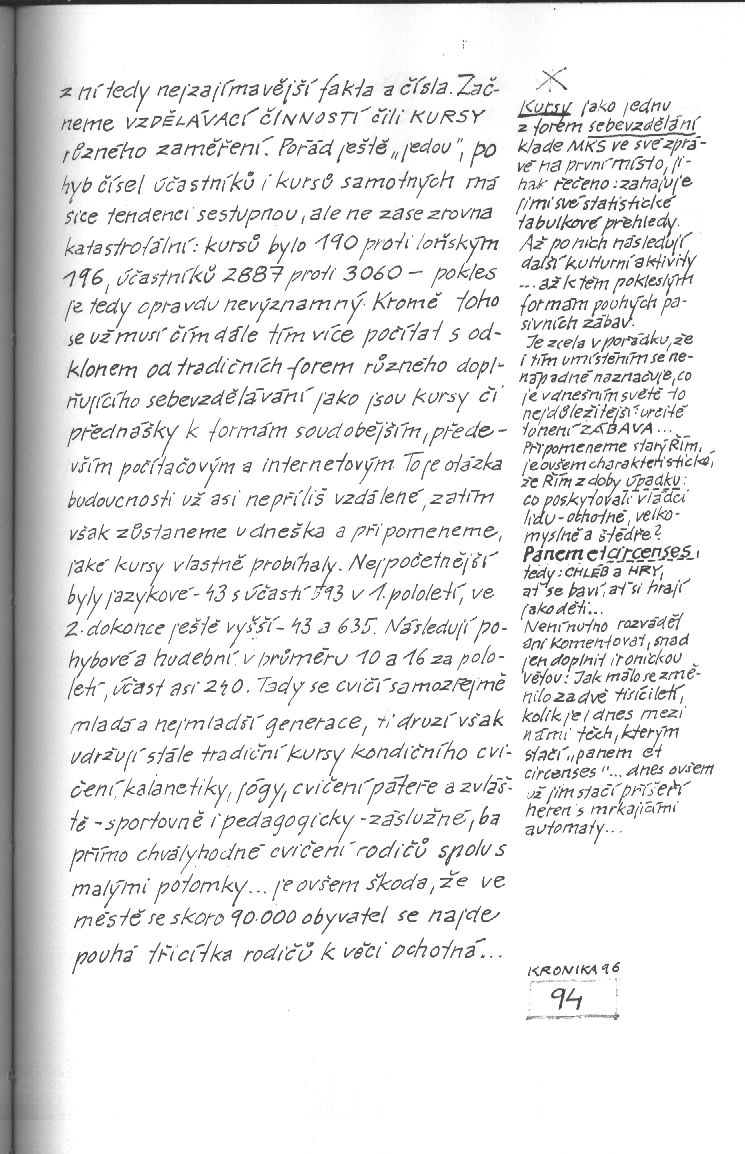 z ní tedy nejzajímavější fakta a čísla. Zač-
neme VZDĚLÁVACÍ ČINNOSTÍ čili KURSY
různého zaměření. Pořád ještě „jedou", po
hyb čísel účastníků i kursů samotných má
sice tendenci sestupnou, ale ne zase zrovna
katastrofální: kursů bylo 190 proti loňským
196, účastníků 2887 proti 3060 – pokles
je tedy opravdu nevýznamný. Kromě toho
se už musí čím dále tím více počítat s od-
klonem od tradičních forem různého dopl-
ňujícího sebevzdělávání jako jsou kursy či
přednášky k formám soudobějším, přede-
vším počítačovým a internetovým. To je otázka
budoucnosti už asi nepříliš vzdálené, zatím
však zůstaneme u dneška a připomeneme,
jaké kursy vlastně probíhaly. Nejpočetnější
byly jazykové – 43 s účastí 593 v 1. pololetí, ve
2. dokonce ještě vyšší – 43 a 635. Následují po-
hybové a hudební, v průměru 10 a 16 za polo-
letí, účast asi 240. Tady se cvičí samozřejmě
mladá a nejmladší generace, ti druzí však
udržují stále tradiční kursy kondičního cvi-
čení, kalanetiky, jógy, cvičení páteře a zvláš-
tě – sportovně i pedagogicky – záslužné, ba
přímo chvályhodné cvičení rodičů spolu s
malými potomky... je ovšem škoda, že ve
městě se skoro 90.000 obyvatel se najde
pouhá třicítka rodičů k věci ochotná...
Kursy jako jednu
z forem sebevzdělání
klade MKS ve své zprá-
vě na první místo, ji-
nak řečeno: zahajuje
jimi své statistické
tabulkové přehledy.
Až po nich následují
další kulturní aktivity
... až k těm pokleslým
formám pouhých pa-
sivních zábav.
Je zcela v pořádku, že
i tím umístěním se ne-
nápadně naznačuje, co
je v dnešním světě to
nejdůležitější: určitě
to není ZÁBAVA...
Připomeneme starý Řím,
je ovšem charakteristické,
že Řím z doby úpadku:
co poskytovali vládci
lidu – ochotně, velko-
myslně a štědře?
Panem et circenses,
tedy: CHLÉB a HRY,
ať se baví, ať si hrají
jako děti...
Není nutno rozvádět
ani komentovat, snad
jen doplnit ironickou
větou: Jak málo se změ-
nilo za dvě tisíciletí,
kolik je i dnes mezi
námi těch, kterým
stačí „panem et
circenses"... dnes ovšem
už jim stačí příšeří
heren s mrkajícími
automaty...
KRONIKA 96
94